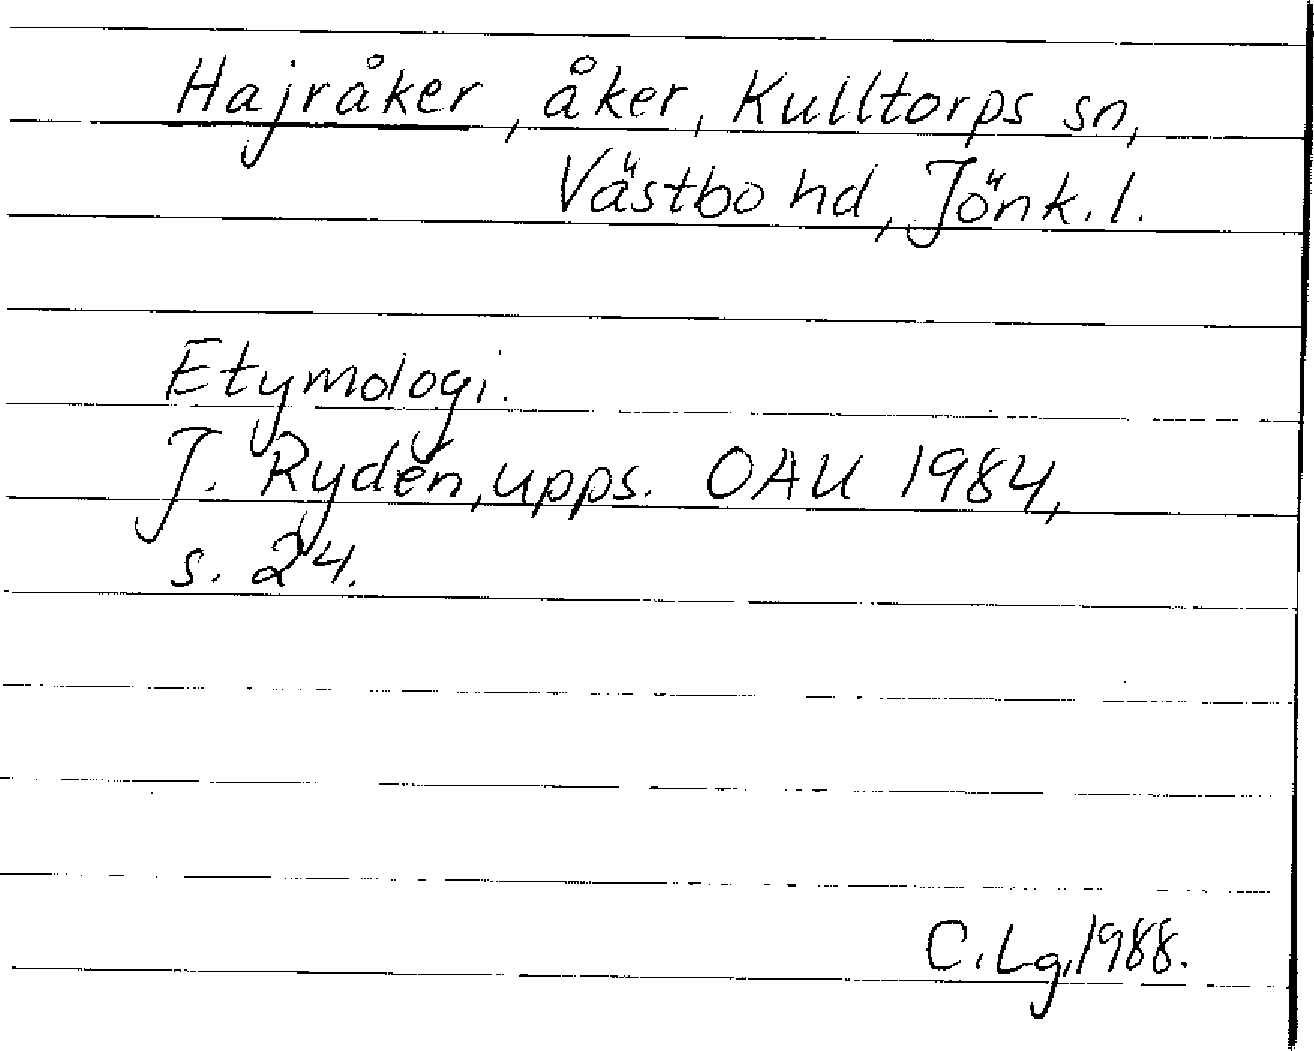 Hajråker, åker, Kulltorps sn,
Västbo hd, Jönk. l.
Etymologi.
J. Rydén, upps. OAU 1984,
s. 24.
C. Lg, 1988.